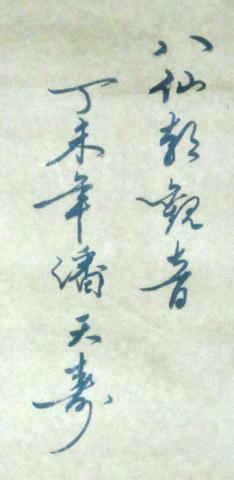 八仙朝觀音
丁未年潘天壽